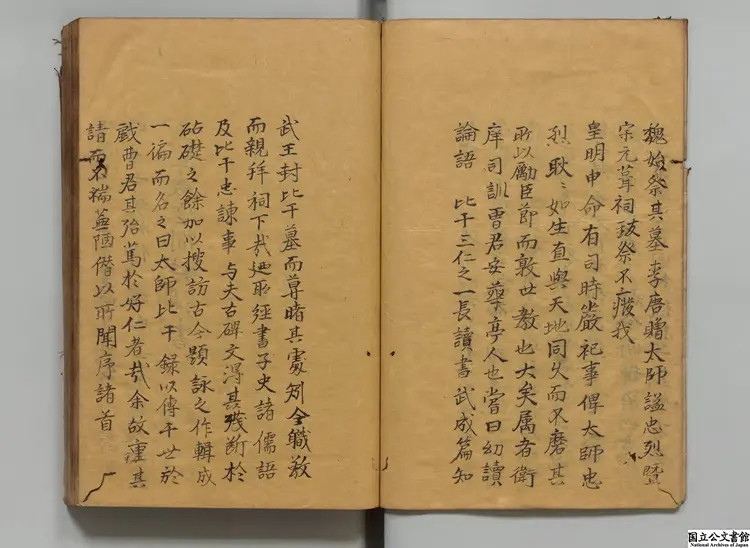 魏始祭其墓李唐贈太師謚忠烈暨
宋元葺祠致祭不廢我
皇明申命有司時嚴祀事俾太師忠
烈耿〻如生直與天地同久而不磨其
所以勵臣節而敦世教也大矣属者衛
庠司訓曺君安華亭人也嘗曰幼讀
論語 比干三仁之一長讀書武成篇知
武王封比干墓而尊睹其處矧全職教
而親拜祠下哉廼取經書子史諸儒語
及比干忠諫事与夫古碑文得其殘断於
砧礎之餘加以搜訪古今題詠之作輯成
一徧而名之曰太師比干録以傳于世於
戯曺君其殆篤於好仁者哉余故重其
請而不揣蕪陋僭以所聞序諸首
国立公文書館
National Archives of Japan